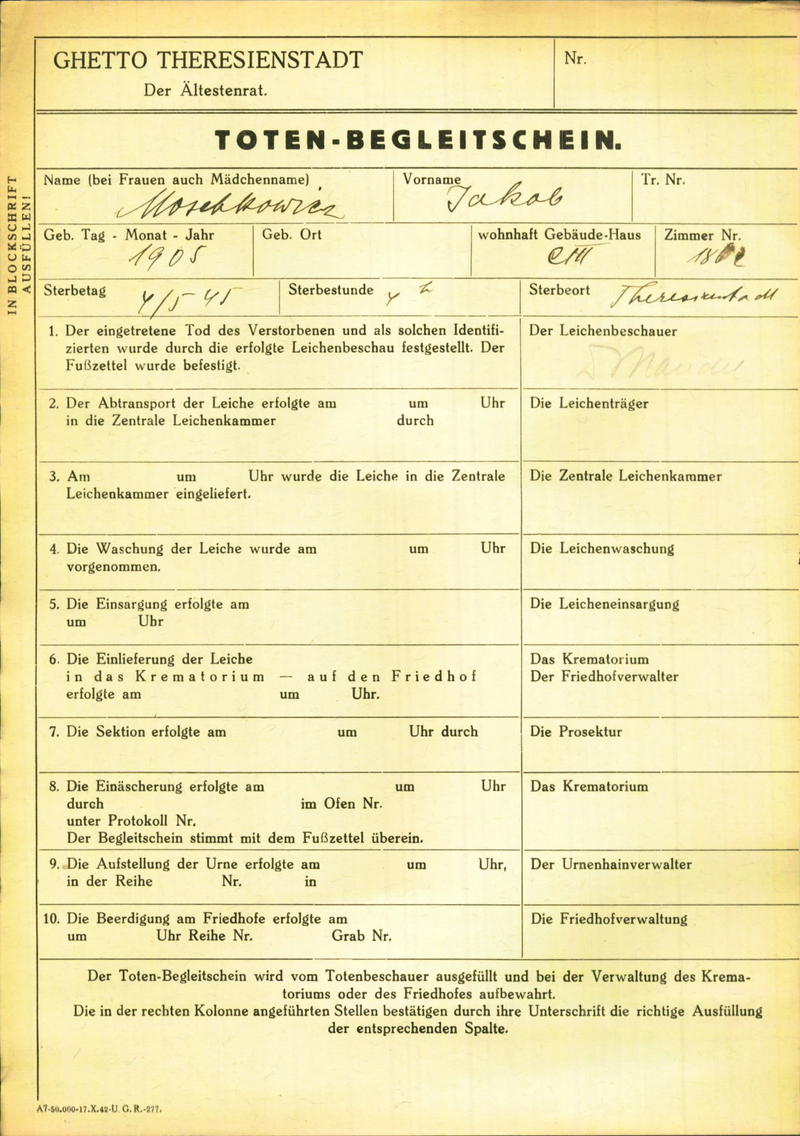 GHETTO THERESIENSTADT
Der Ältestenrat.
Nr.
TOTEN-BEGLEITSCHEIN.
IN BLOCKSCHRIFT
AUSFÜLLEN!
Name (bei Frauen auch Mädchenname) Moschkowicz
Vorname Jakob
Tr. Nr.
Geb. Tag - Monat - Jahr 1905
Geb. Ort
wohnhaft Gebäude-Haus CIII
Zimmer Nr.
Sterbetag 4/5 45
Sterbestunde 4 h
Sterbeort Theresienstadt
1. Der eingetretene Tod des Verstorbenen und als solchen Identifi-
zierten wurde durch die erfolgte Leichenbeschau festgestellt. Der
Fußzettel wurde befestigt.
Der Leichenbeschauer
2. Der Abtransport der Leiche erfolgte am um Uhr
in die Zentrale Leichenkammer durch
Die Leichenträger
3. Am um Uhr wurde die Leiche in die Zentrale
Leichenkammer eingeliefert.
Die Zentrale Leichenkammer
4. Die Waschung der Leiche wurde am um Uhr
vorgenommen.
Die Leichenwaschung
5. Die Einsargung erfolgte am
um Uhr
Die Leicheneinsargung
6. Die Einlieferung der Leiche
in das Krematorium — auf den Friedhof
erfolgte am um Uhr.
Das Krematorium
Der Friedhofverwalter
7. Die Sektion erfolgte am um Uhr durch
Die Prosektur
8. Die Einäscherung erfolgte am um Uhr
durch im Ofen Nr.
unter Protokoll Nr.
Der Begleitschein stimmt mit dem Fußzettel überein.
Das Krematorium
9. Die Aufstellung der Urne erfolgte am um Uhr,
in der Reihe Nr. in
Der Urnenhainverwalter
10. Die Beerdigung am Friedhofe erfolgte am
um Uhr Reihe Nr. Grab Nr.
Die Friedhofverwaltung
Der Toten-Begleitschein wird vom Totenbeschauer ausgefüllt und bei der Verwaltung des Krema-
toriums oder des Friedhofes aufbewahrt.
Die in der rechten Kolonne angeführten Stellen bestätigen durch ihre Unterschrift die richtige Ausfüllung
der entsprechenden Spalte.
A7-50.000-17.X.42-U. G. R.-277.